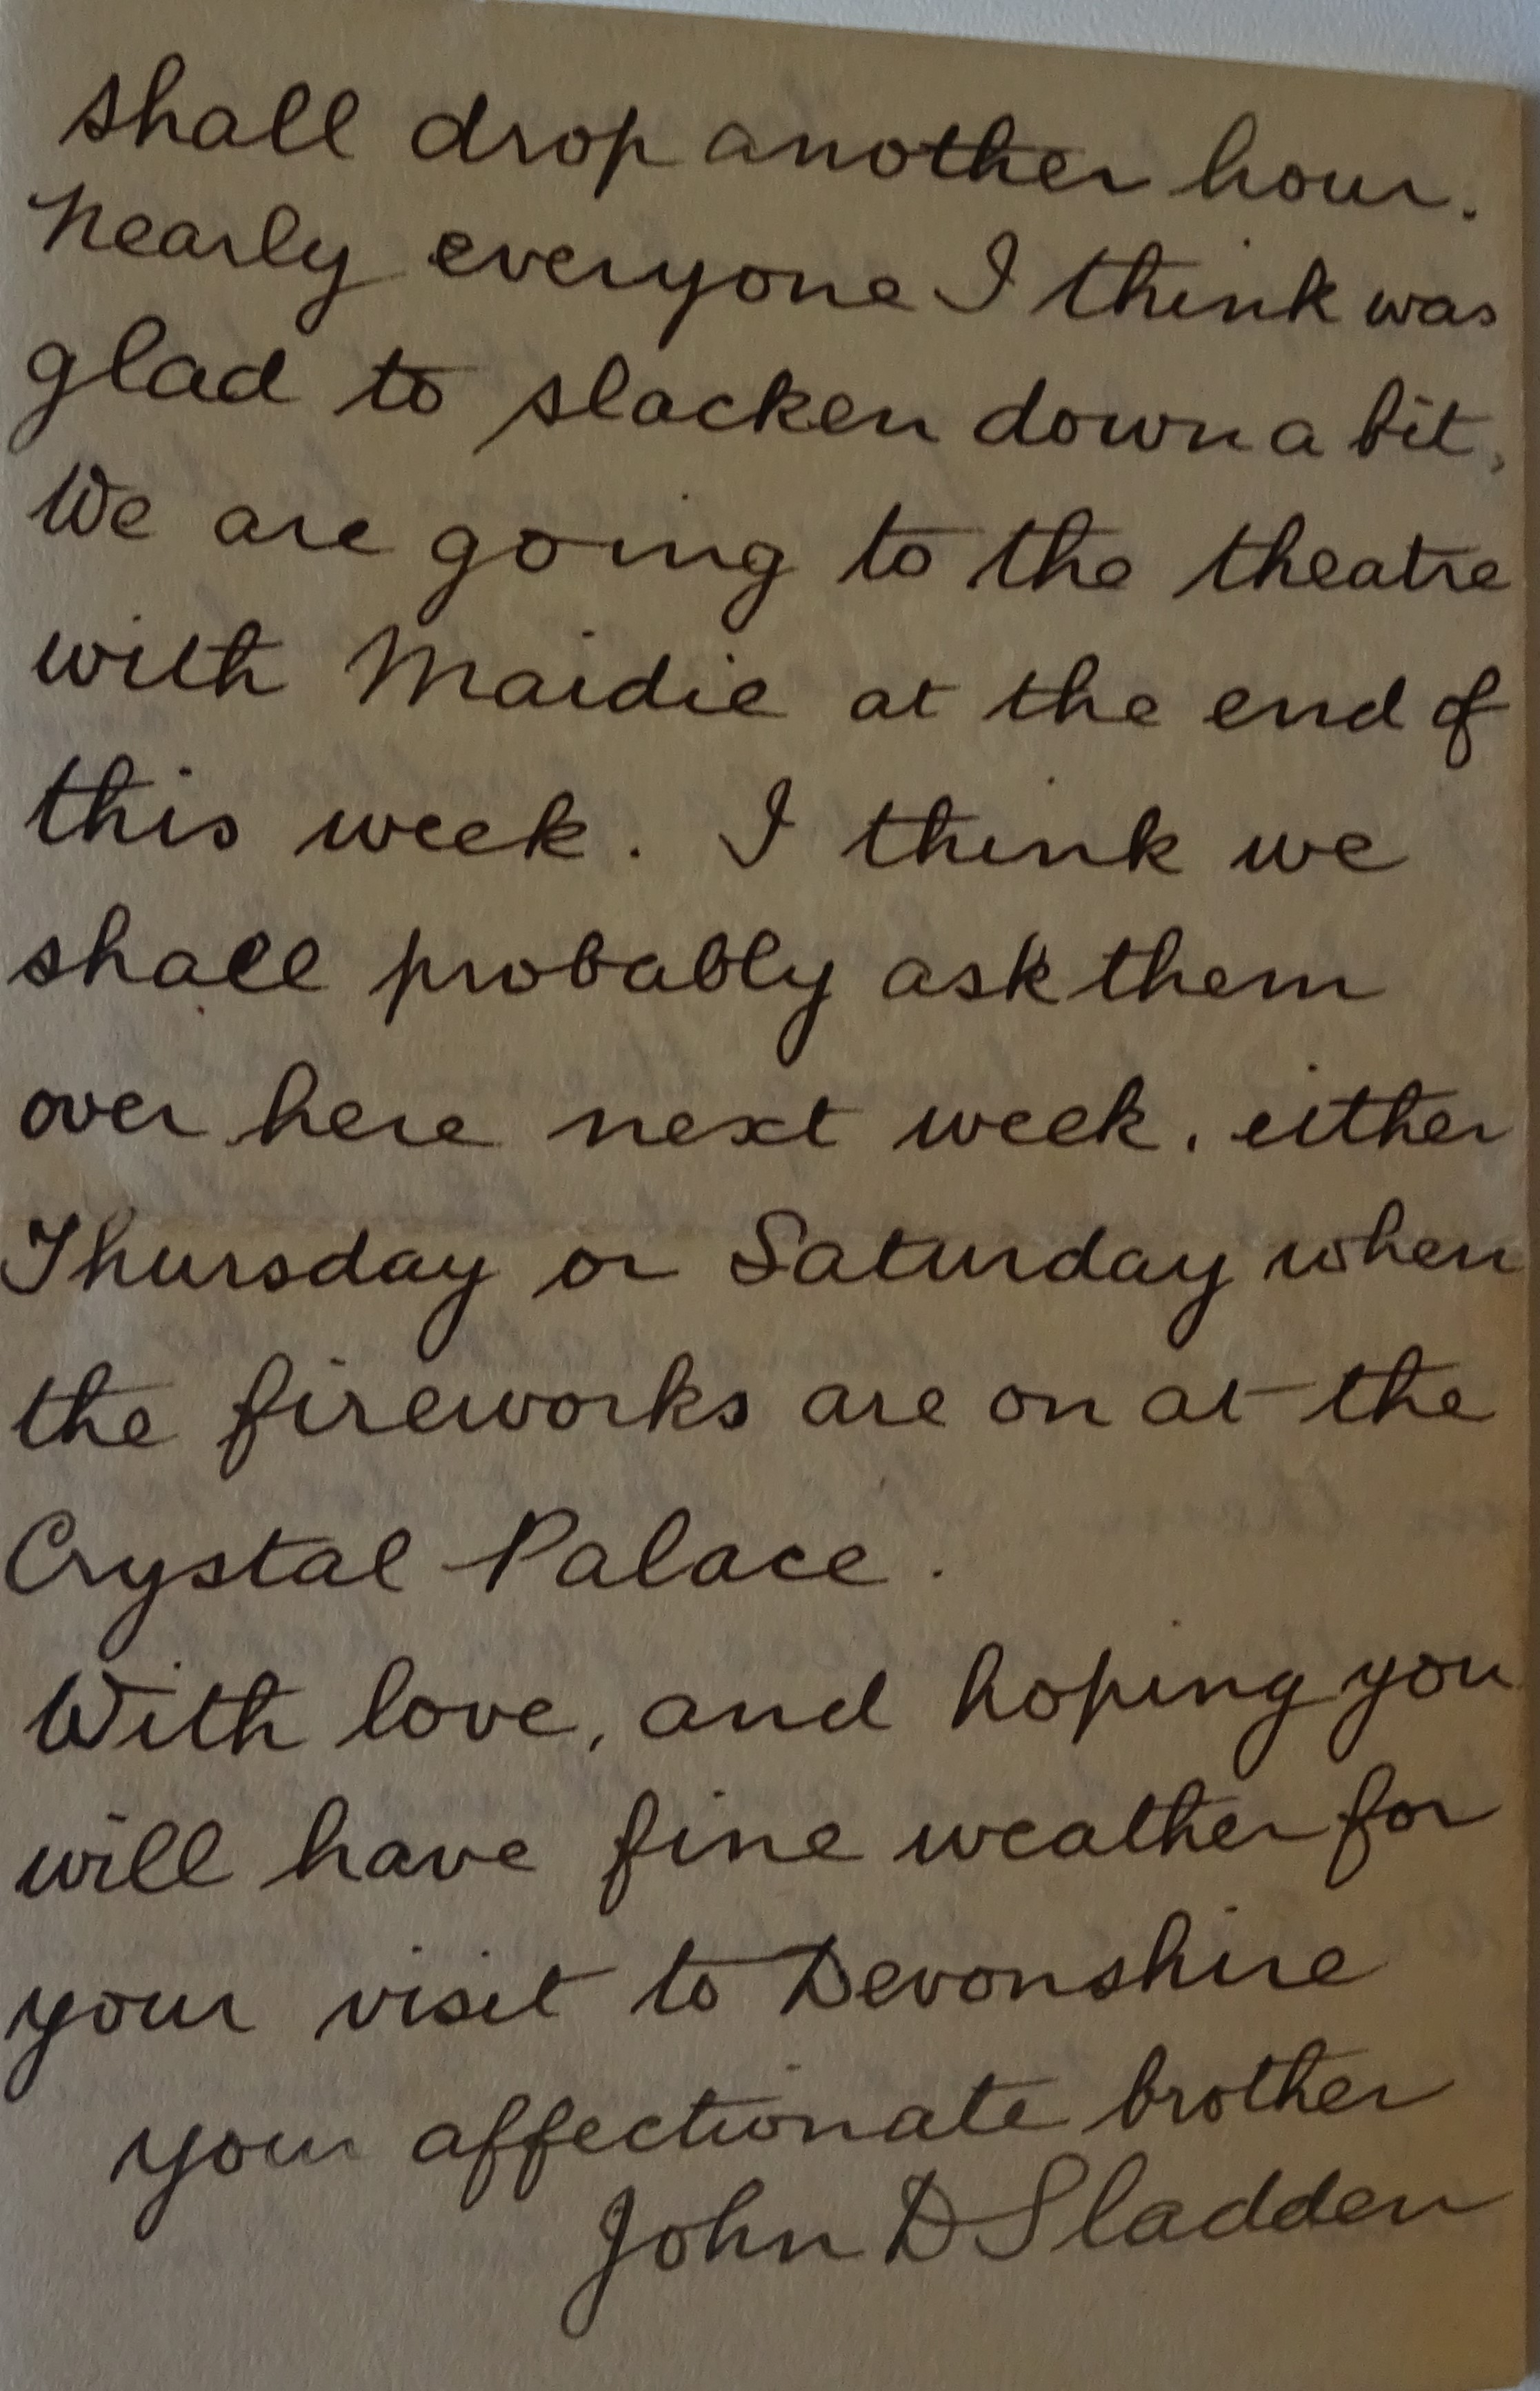 shall drop another hour.
Nearly everyone I think was
glad to slacken down a bit,
We are going to the theatre
with Maidie at the end of
this week. I think we
shall probably ask them
over here next week, either
Thursday or Saturday when
the fireworks are on at the
Crystal Palace.
With love, and hoping you
will have fine weather for
your visit to Devonshire
your affectionate brother
John D Sladden